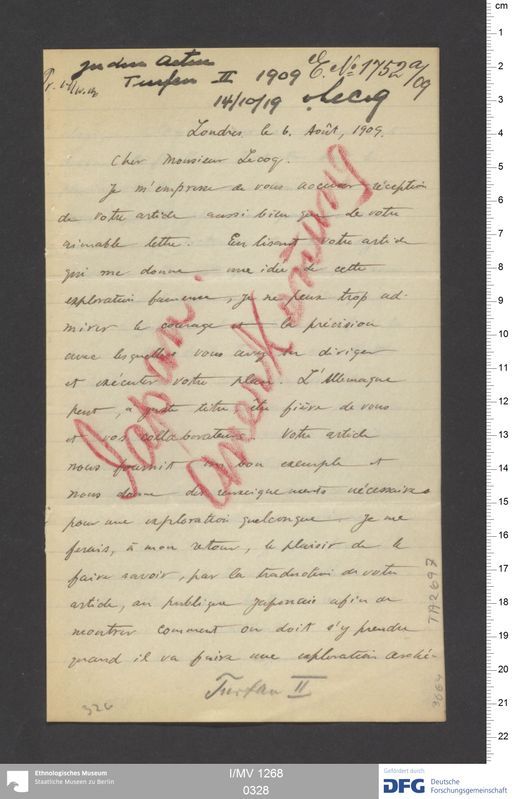 zu den Acten
Turfan II 1909 E. No 1752a/09
14/10/19 Lecoq
Londres, le 6. Août, 1909.
Cher Monsieur Lecoq.
Je m'empresse de vous accuser réception
de votre article aussi bien que de votre
aimable lettre. En lisant votre article
qui me donne une idée de cette
exploration fameuse, je ne peux trop ad-
mirer le courage et la précision
avec lesquelles vous avez su diriger
et exécuter votre plan. L'Allemagne
peut, à juste titre, être fière de vous
et vos collaborateurs. Votre article
nous fournit un bon exemple et
nous donne des renseignements nécessaires
pour une exploration quelconque. Je me
ferais, à mon retour, le plaisir de le
faire savoir, par la traduction de votre
article, au publique Japonais afin de
montrer comment on doit s'y prendre
quand il va faire une exploration arché-
Japan.
Anerkennung
Turfan II
326
TA2697
3064
cm
1
2
3
4
5
6
7
8
9
10
11
12
13
14
15
16
17
18
19
20
21
22
Ethnologisches Museum
Staatliche Museen zu Berlin
I/MV 1268
0328
Gefördert durch
DFG Deutsche
Forschungsgemeinschaft